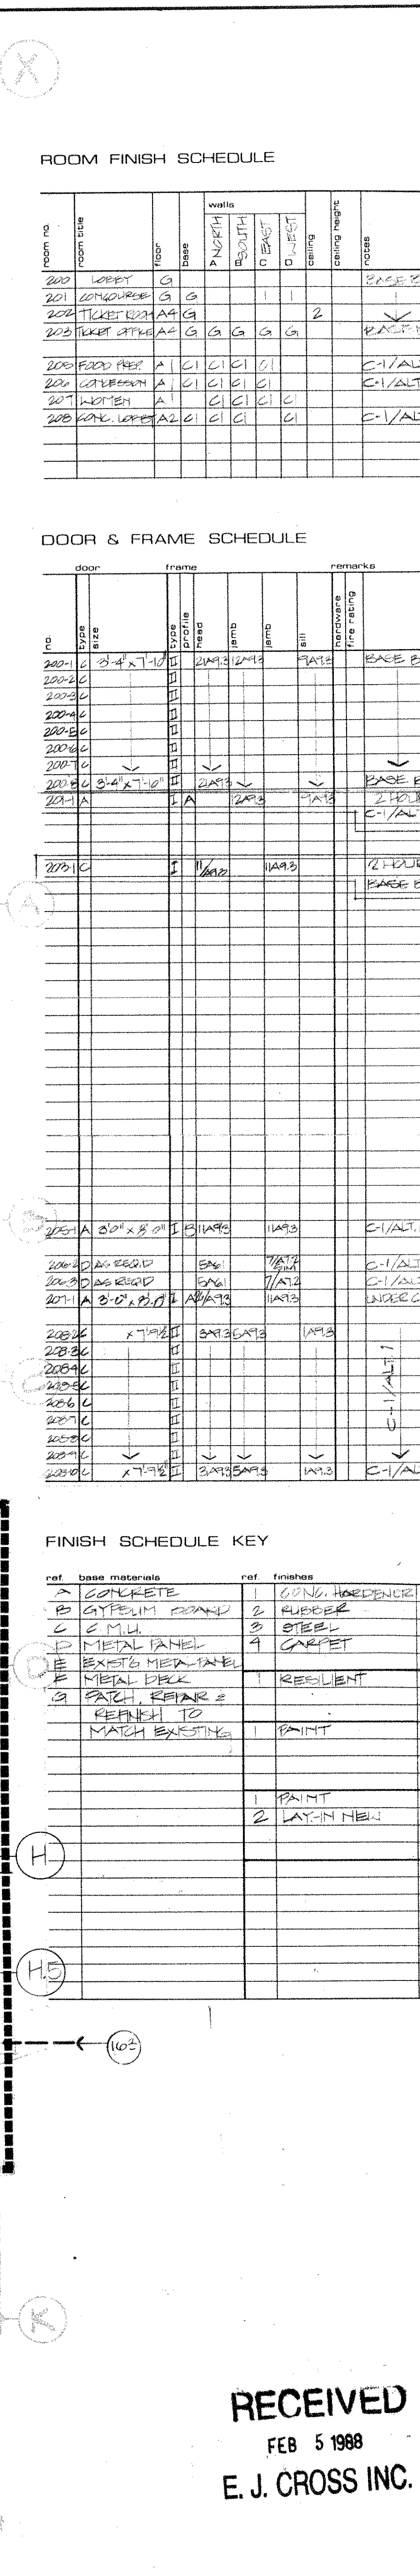 X
ROOM FINISH SCHEDULE
walls
room no.
room title
floor
base
A NORTH
B SOUTH
C EAST
D WEST
ceiling
ceiling height
notes
200 LOBBY G BASE B
201 CONCOURSE G G 1 1
202 TICKET ROOM A4 G 2
203 TICKET OFFICE A4 G G G G G BASE
205 FOOD PREP. A1 C1 C1 C1 C1 C-1/ALT
206 CONCESSION A1 C1 C1 C1 C1 C-1/ALT
207 WOMEN A1 C1 C1 C1 C1
208 CONC. LOBBY A2 C1 C1 C1 C1 C-1/ALT
DOOR & FRAME SCHEDULE
door frame remarks
no.
type
size
type
profile
head
jamb
jamb
sill
hardware
fire rating
200-1 C 3'-4" x 7'-10" II 2/A9.3 12A9.3 9A9.3 BASE B
200-2 C II
200-3 C II
200-4 C II
200-5 C II
200-6 C II
200-7 C II
200-8 C 3'-4" x 7'-10" II 2/A9.3 BASE B
201-1 A I A 2A9.3 9A9.3 2 HOU
C-1/ALT
203-1 C I 11A9.3 2 HOU
BASE B
A
205-1 A 3'0" x 8'-0" I B 11A9.3 11A9.3 C-1/ALT.
206-2 D AS REQ'D 5A6.1 7/A7.2 SIM C-1/ALT
206-3 D AS REQ'D 5A6.1 7/A7.2 C-1/ALT
207-1 A 3'-0" x 8'-0" I 11A9.3 UNDER C
208-2 C x 7'-9½" II 3A9.3 5A9.3 1A9.3
208-3 C II
208-4 C II
208-5 C II
208-6 C II
208-7 C II
208-8 C II
208-9 C II
C-1/ALT 1
C x 7'-9½" II 3A9.3 5A9.3 1A9.3 C-1/AL
FINISH SCHEDULE KEY
ref. base materials ref. finishes
A CONCRETE 1 CONC. HARDENER
B GYPSUM BOARD 2 RUBBER
C C.M.U. 3 STEEL
D METAL PANEL 4 CARPET
E EXIST'G METAL PANEL
F METAL DECK 1 RESILIENT
G PATCH, REPAIR &
REFINISH TO
MATCH EXISTING 1 PAINT
1 PAINT
2 LAY-IN NEW
D
H
H.5
K
RECEIVED
FEB 5 1988
E. J. CROSS INC.